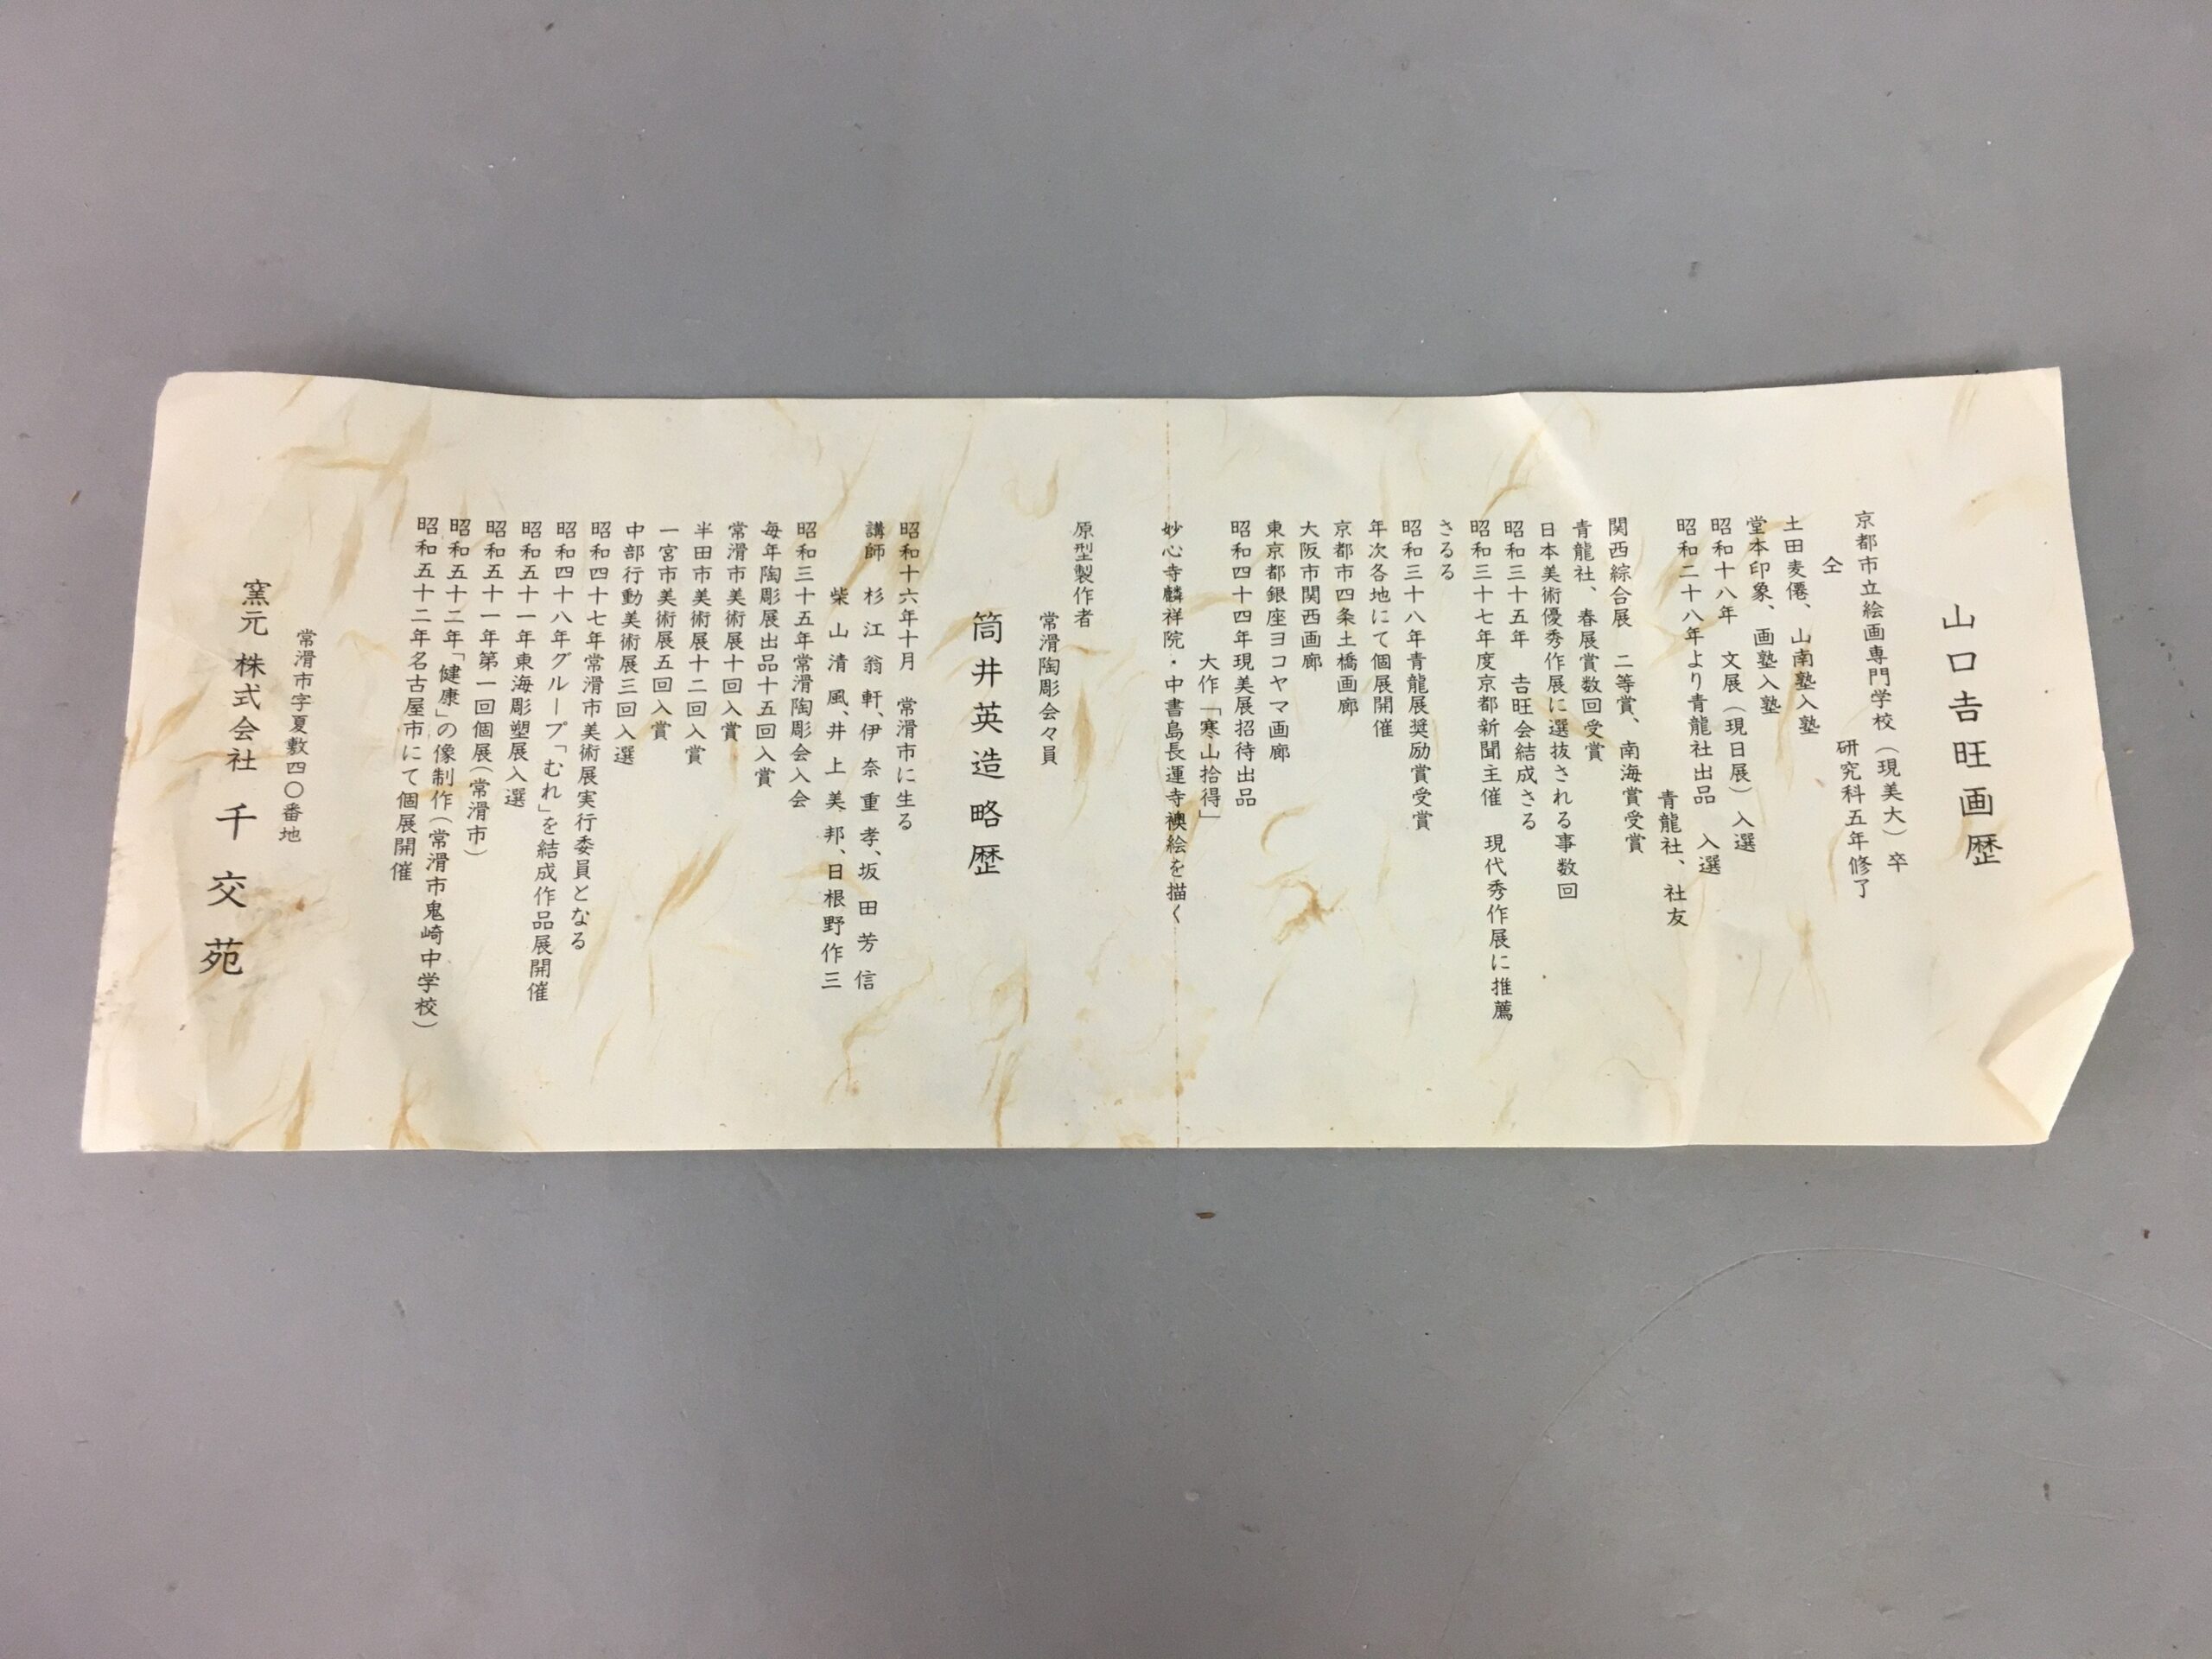 山口吉旺画歴
京都市立絵画専門学校（現美大）卒
仝　研究科五年修了
土田麦僊、山南塾入塾
堂本印象、画塾入塾
昭和十八年　文展（現日展）入選
昭和二十八年より青龍社出品　入選
青龍社、社友
関西綜合展　二等賞、南海賞受賞
青龍社、春展賞数回受賞
日本美術優秀作展に選抜される事数回
昭和三十五年　吉旺会結成さる
昭和三十七年度京都新聞主催　現代秀作展に推薦
さるる
昭和三十八年青龍展奨励賞受賞
年次各地にて個展開催
京都市四条土橋画廊
大阪市関西画廊
東京都銀座ヨコヤマ画廊
昭和四十四年現美展招待出品
大作「寒山拾得」
妙心寺麟祥院・中書島長運寺襖絵を描く
原型製作者
常滑陶彫会々員
筒井英造略歴
昭和十六年十月　常滑市に生る
講師　杉江翁軒、伊奈重孝、坂田芳信
柴山清風、井上美邦、日根野作三
昭和三十五年常滑陶彫会入会
毎年陶彫展出品十五回入賞
常滑市美術展十回入賞
半田市美術展十二回入賞
一宮市美術展五回入賞
中部行動美術展三回入選
昭和四十七年常滑市美術展実行委員となる
昭和四十八年グループ「むれ」を結成作品展開催
昭和五十一年東海彫塑展入選
昭和五十一年第一回個展（常滑市）
昭和五十二年「健康」の像制作（常滑市鬼崎中学校）
昭和五十二年名古屋市にて個展開催
常滑市字夏敷四〇番地
窯元株式会社千交苑